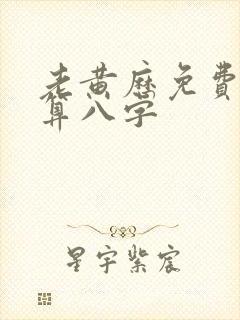 老黄历免费
算八字
星宇紫宸